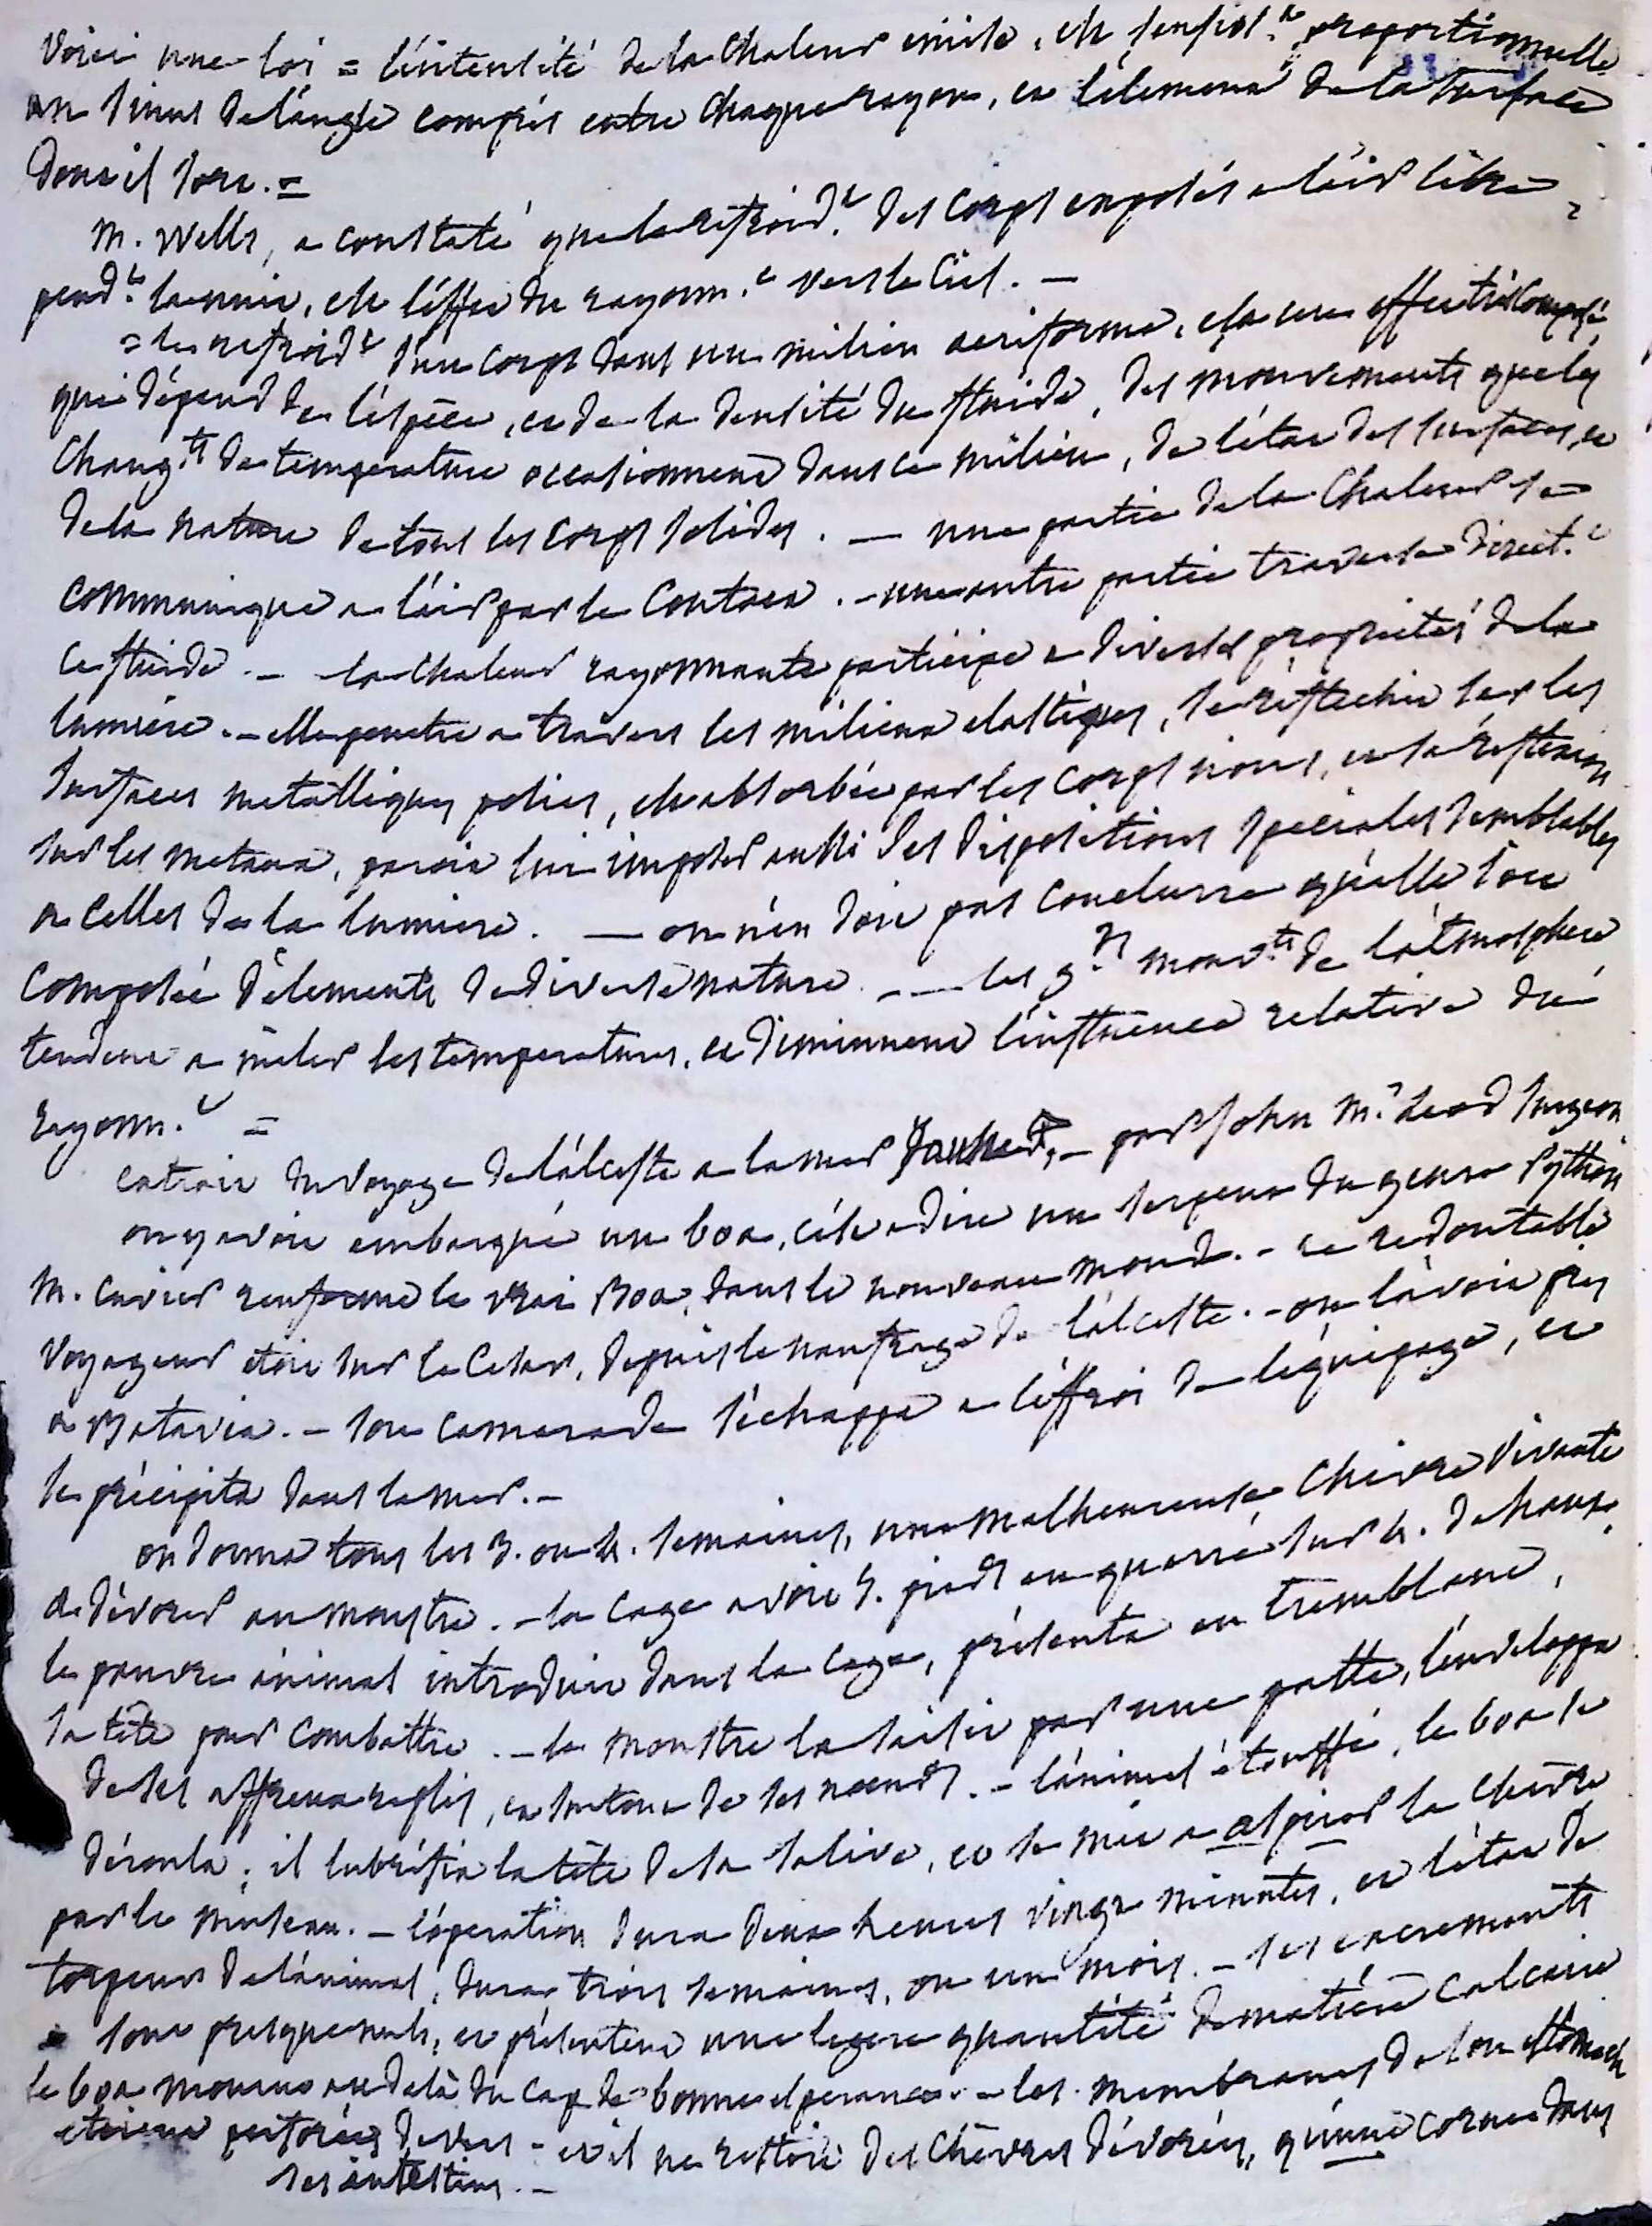 Voici une loi = l'intensité de la chaleur émise, est sensibl.t proportionnelle
au sinus de l'angle compris entre chaque rayon, et l'élément de la surface
dont il sort. =
M. Wells, a constaté que le refroid.t des corps exposés a l'air libre,
pend.t la nuit, est l'effet du rayonn.t vers le Ciel. —
= le refroid.t d'un corps dans un milieu aeriforme, est un effet très composé,
qui dépend de l'espèce, et de la densité du fluide, des mouvements que les
chang.ts de temperature occasionnent dans ce milieu, de l'état des surfaces, et
de la nature de tous les corps solides. — une partie de la chaleur se
communique a l'air par le contact. – une autre partie traverse direct.t
ce fluide. – la chaleur rayonnante participe a diverses propriétés de la
lumière. – elle penetre a travers les milieux elastiques, se réflechit sur les
surfaces metalliques polies, est absorbée par les corps noirs, et sa réflexion
sur les metaux, paroit lui imposer aussi des dispositions speciales semblables
a celles de la lumiere. — on n'en doit pas conclurre qu'elle soit
composée d'élements de diverse nature. — les g.ds mouv.ts de l'atmosphere
tendent a mêler les temperatures, et diminuent l'influence relative du
rayonn.t =
extrait du voyage de l'alceste a la mer Jaune, – par John M.c Leod surgeon
on y avoit embarqué un boa, c'est a dire un serpent du genre Python
M. Cuvier renferme le vrai Boa, dans le nouveau monde. – ce redoutable
voyageur etoit sur le Cesar, depuis le naufrage de l'alceste. – on l'avoit pris
a Batavia. – son camarade s'échappa a l'effroi de l'équipage, et
se précipita dans la mer. –
on donna tous les 3. ou 4. semaines, une malheureuse chèvre vivante
a dévorer au monstre. – la cage avoit 5. pieds en quarré sur 4. de haut.
le pauvre animal introduit dans la cage, présenta en tremblant,
sa tête pour combattre. – le monstre la saisit par une patte, l'enveloppa
de ses affreux replis, et l'entoura de ses noeuds. – l'animal étouffé, le boa se
déroula; il lubréfia la tête de sa salive, et se mit a aspirer la chèvre
par le museau. – l'operation dura deux heures vingt minutes, et l'état de
torpeur de l'animal, dura trois semaines, ou un mois. – ses excrements
sont presque nuls, et présentent une legere quantité de matière calcaire
le boa mourut au delà du Cap de bonne esperance. – les membranes de son estomach
étoient perforées de vers – et il ne restoit des chèvres dévorées, qu'une corne dans
ses intestins. –